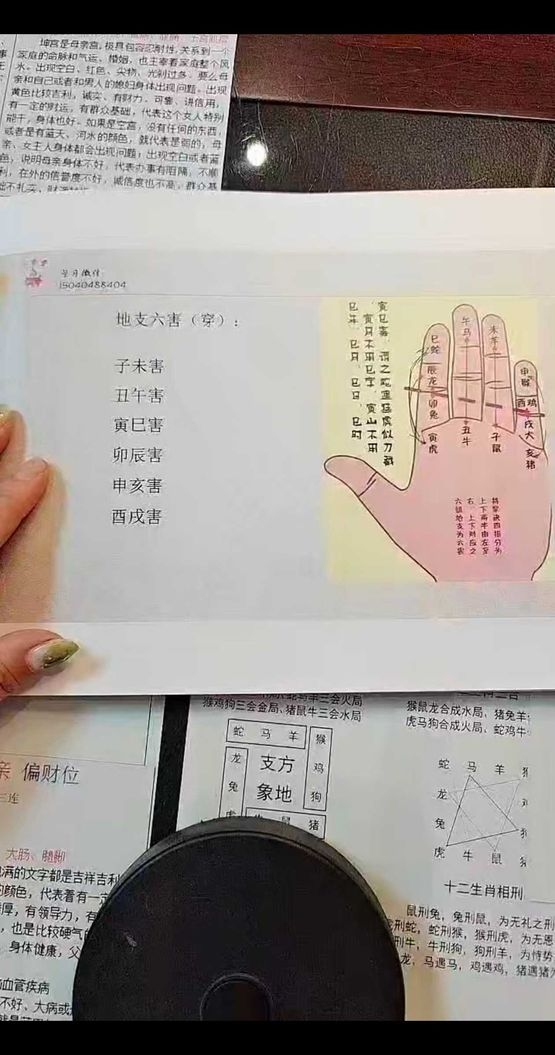 坤宫是母亲宫,极具包容忍耐性,关系到一个
家庭的命脉和气运、婚姻,也主宰着家庭整个风
水、出现空白、红色、尖物、光刹过多,要么母
亲和自己或者和男人的媳妇身体出现问题,出现
黄色比较吉利,诚实、有财力、可靠、讲信用,
有一定的财运,有群众基础,代表这个女人特别
能干,身体也好。如果是空宫,没有任何的东西,
或者是有蓝天、河水的颜色,就代表是弱的,母
亲、女主人身体都会出现问题;出现空白或者蓝
色,说明母亲身体不好,代表办事有阻隔,不顺
利,在外的信誉度不好,诚信度也不高,群众基
学习微信
15040488404
地支六害(穿):
子未害
丑午害
寅巳害
卯辰害
申亥害
酉戌害
寅山不用
巳年、巳月、巳日、巳时
巳蛇
午马
未羊
申猴
辰龙
卯兔
寅虎
丑牛
子鼠
酉鸡
戌犬
亥猪
将掌诀四指分为
上下两半由左至
右,上下对应之
六组地支为六害
猴鸡狗三会金局、猪鼠牛三会水局
蛇 马 羊 猴
龙 支方 鸡
兔 象地 狗
牛 鼠 猪
猴鼠龙合成水局、猪兔羊
虎马狗合成火局、蛇鸡牛
蛇 马 羊
龙
兔
虎 牛 鼠
十二生肖相刑
鼠刑兔,兔刑鼠,为无礼之刑
刑蛇,蛇刑猴,猴刑虎,为无恩
刑牛,牛刑狗,狗刑羊,为恃势
龙,马遇马,鸡遇鸡,猪遇猪为
亲 偏财位
三连
大肠、腿脚
满的文字都是吉祥吉利
的颜色,代表着有一定
厚,有领导力,有
,也是比较硬气
身体健康,父
血管疾病
不好、大病或